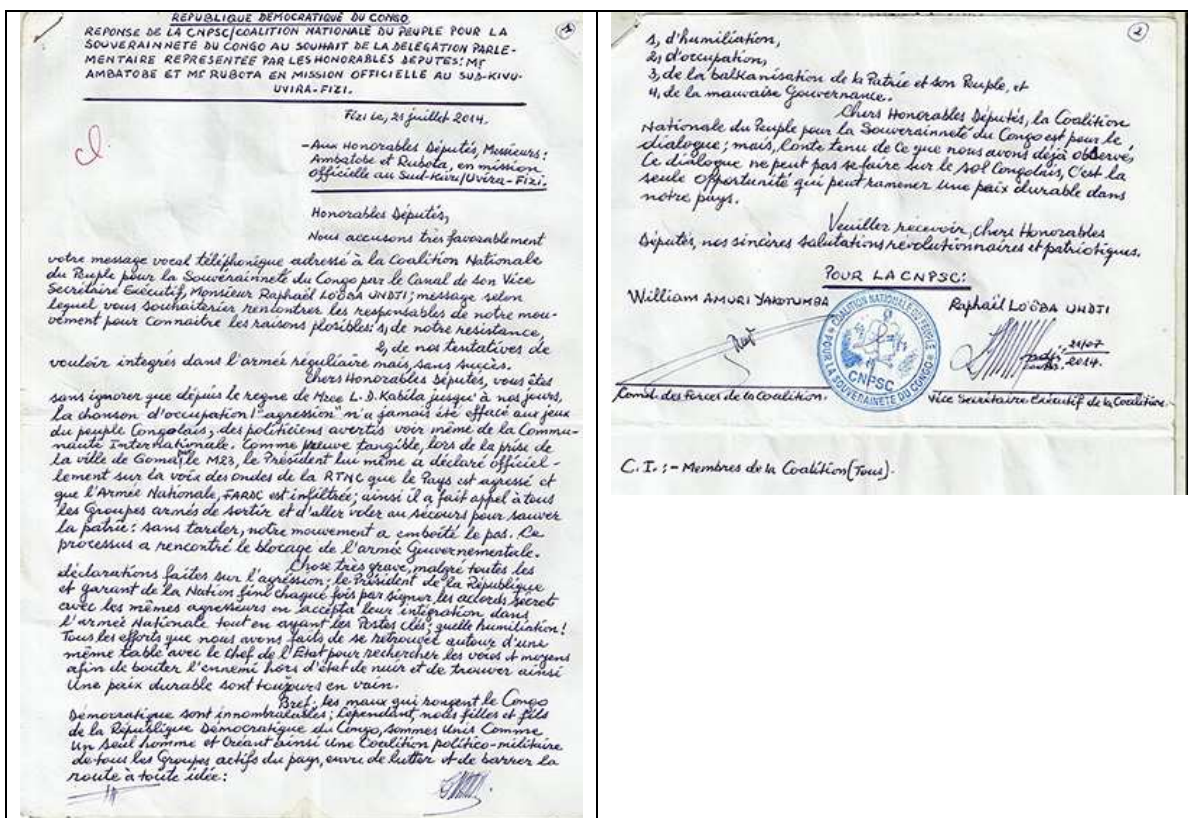 REPUBLIQUE DÉMOCRATIQUE DU CONGO
①
REPONSE DE LA CNPSC/COALITION NATIONALE DU PEUPLE POUR LA
SOUVERAINNETÉ DU CONGO AU SOUHAIT DE LA DELÉGATION PARLE-
MENTAIRE REPRESENTEE PAR LES HONORABLES DEPUTES: MR
AMBATOBE ET MR RUBOTA EN MISSION OFFICIELLE AU SUD-KIVU-
UVIRA-FIZI.
Fizi le, 21 juillet 2014.
-Aux Honorables Députés, Messieurs:
Ambatobe et Rubota, en mission
officielle au Sud-Kivu/Uvira-Fizi.
Honorables Députés,
Nous accusons très favorablement
votre message vocal téléphonique adressé à la Coalition Nationale
du Peuple pour la Souveraineté du Congo par le Canal de son Vice
Secrétaire Exécutif, Monsieur Raphaël LOOBA UNDJI; message selon
lequel vous souhaiterier rencontrer les responsables de notre mou-
vement pour connaitre les raisons plosibles: 1, de notre resistance,
2, de nos tentatives de
vouloir integrés dans l'armée régulière mais, sans succès.
Chers Honorables Députés, vous êtes
sans ignorer que dépuis le regne de Mzee L.D. Kabila jusqu'à nos jours,
la chanson d'occupation l'"agression" n'a jamais été effacé aux jeux
du peuple Congolais; des politiciens avertis voir même de la Commu-
nauté Internationale. Comme preuve tangible, lors de la prise de
la ville de Goma, le M23, le Président lui même a déclaré officiel-
lement sur la voix des ondes de la RTNC que le Pays est agressé et
que l'Armée Nationale, FARDC est infiltrée; ainsi il a fait appel à tous
les Groupes armés de sortir et d'aller voler au sécours pour sauver
la patrie: sans tarder, notre mouvement a emboîté le pas. Ce
processus a rencontré le blocage de l'armée Gouvernementale.
Chose très grave, malgré toutes les
déclarations faites sur l'agréssion; le Président de la République
et garant de la Nation fini chaque fois par signer les accords sécret
avec les mêmes agresseurs en accepta leur intégration dans
l'armée Nationale tout en ayant les Postes clés; quelle humiliation!
Tous les efforts que nous avons faits de se retrouver autour d'une
même table avec le Chef de l'Etat pour rechercher les voies et moyens
afin de bouter l'ennemi hors d'état de nuir et de trouver ainsi
Une paix durable sont toujours en vain.
Bref: les maux qui rongent le Congo
Démocratique sont innombralables; Cependant, nous filles et fils
de la République Démocratique du Congo, sommes Unis Comme
Un seul homme et Créant ainsi Une Coalition politico-militaire
de tous les Groupes actifs du pays, envu de lutter et de barrer la
route à toute idée:
②
1, d'humiliation,
2, d'occupation,
3, de la balkanisation de la Patrie et son Peuple, et
4, de la mauvaise Gouvernance.
Chers Honorables Députés, la Coalition
Nationale du Peuple pour la Souverainneté du Congo est pour le
dialogue; mais, Conte tenu de Ce que nous avons déjà observés,
Ce dialogue ne peut pas se faire sur le sol Congolais, C'est la
seule opportunité qui peut ramener une paix durable dans
notre pays.
Veuillez recevoir, Chers Honorables
Députés, nos sincères salutations révolutionnaires et patriotiques.
POUR LA CNPSC:
William AMURI YAKOTUMBA
Raphaël LOOBA UNDJI
COALITION NATIONALE DU PEUPLE
POUR LA SOUVERAINETE DU CONGO
CNPSC
21/07
2014.
Comd. des Forces de la Coalition.
Vice Secrétaire Exécutif de la Coalition.
C.I.: - Membres de la Coalition (Tous).